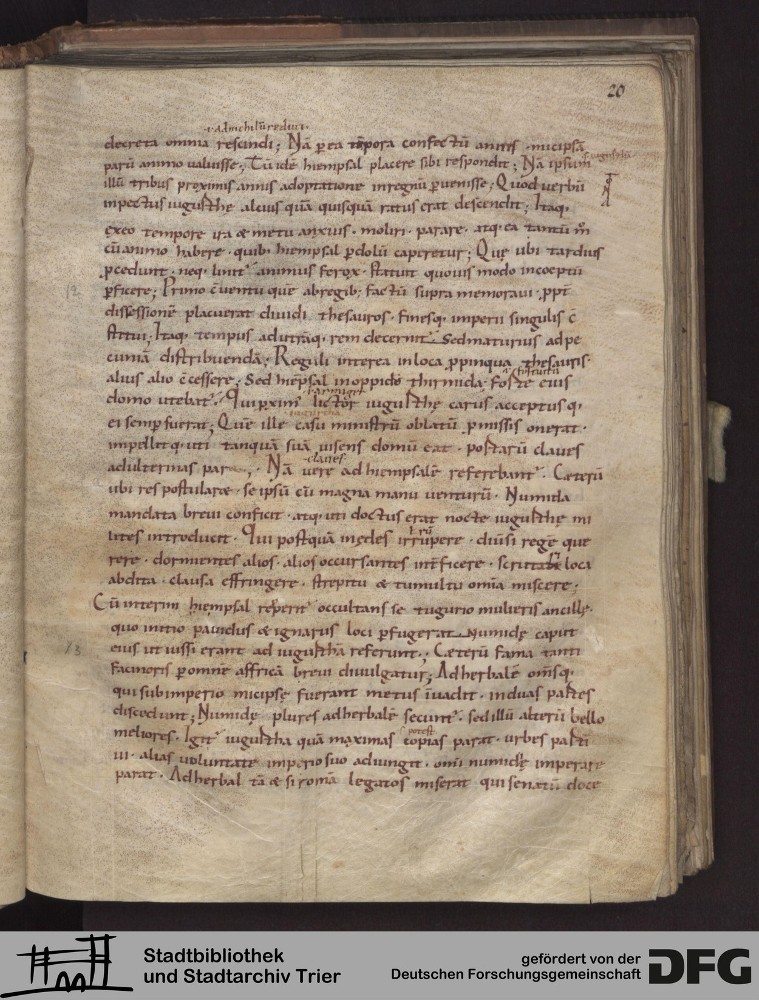 20
.i. ad nichilū redigi.
decreta omnia rescindi; Nā p ea tēpora confectū annis micipsā
parū animo valuisse; Tū idē hiempsal placere sibi respondit; Nā ipsum
illū tribus proximis annis adoptatione in regnū puenisse; Quod verbū
in pectus iugurthe alcius quā quisquā ratus erat descendit; Itaq.
ex eo tempore ira & metu anxius. moliri. parare. atq. ea tantū m̄
cū animo habere. quib. hiempsal p dolū caperetur; Que ubi tardius
pcedunt. neq. lenit' animus ferox. statuit quovis modo incoeptū
pficere; Primo c̄ventu quē ab regib; factū supra memoravi. ppt
dissessionē placuerat dividi thesauros. finesq. imperii singulis c̄
stitui; Itaq. tempus ad utrāq. rem decernit'. Sed maturius ad pe
cuniā distribuendā; Reguli interea in loca ppinqua thesauris.
alius alio c̄cessere; Sed hiēpsal in oppido thirmida. forte eius
domo utebat'. Qui pxim' lictor iugurthe carus acceptus q.
ei semp fuerat; Quē ille casu ministrū oblatū pmissis onerat.
impellitq. uti tanquā suā visens domū eat. portarū claves
adulterinas par
claves
Nā vere ad hiempsalē referebant'. Ceterū
ubi res postularæ. se ipsū cū magna manu venturū. Numida
mandata brevi conficit. atq. uti doctus erat nocte iugurthe mi
lites introducit. Qui postquā in edes irrupere. divsi regē que
rere. dormientes alios. alios occursantes int̄ficere. scrutari loca
abdita. clausa effringere. strepitu & tumultu omīa miscere;
Cū interim hiempsal repperit' occultans se tugurio mulieris ancille.
quo initio pavidus & ignarus loci pfugerat. Numide caput
eius ut iussi erant ad iugurthā referunt.; Ceterū fama tanti
facinoris p omnē affricā brevi divulgatur; Adherbalē om̄sq.
qui sub imperio micipse fuerant metus īvadit. in duas partes
discedunt; Numide plures adherbalē secunt'. sed illū alterū bello
meliores. Igit' iugurtha quā maximas copias parat. urbes parti
potest
vi. alias voluntate imperio suo adiungit. omi numide imperare
parat. Adherbal tā & si romā legatos miserat qui senatū doce
12
13
Stadtbibliothek
und Stadtarchiv Trier
gefördert von der
Deutschen Forschungsgemeinschaft
DFG